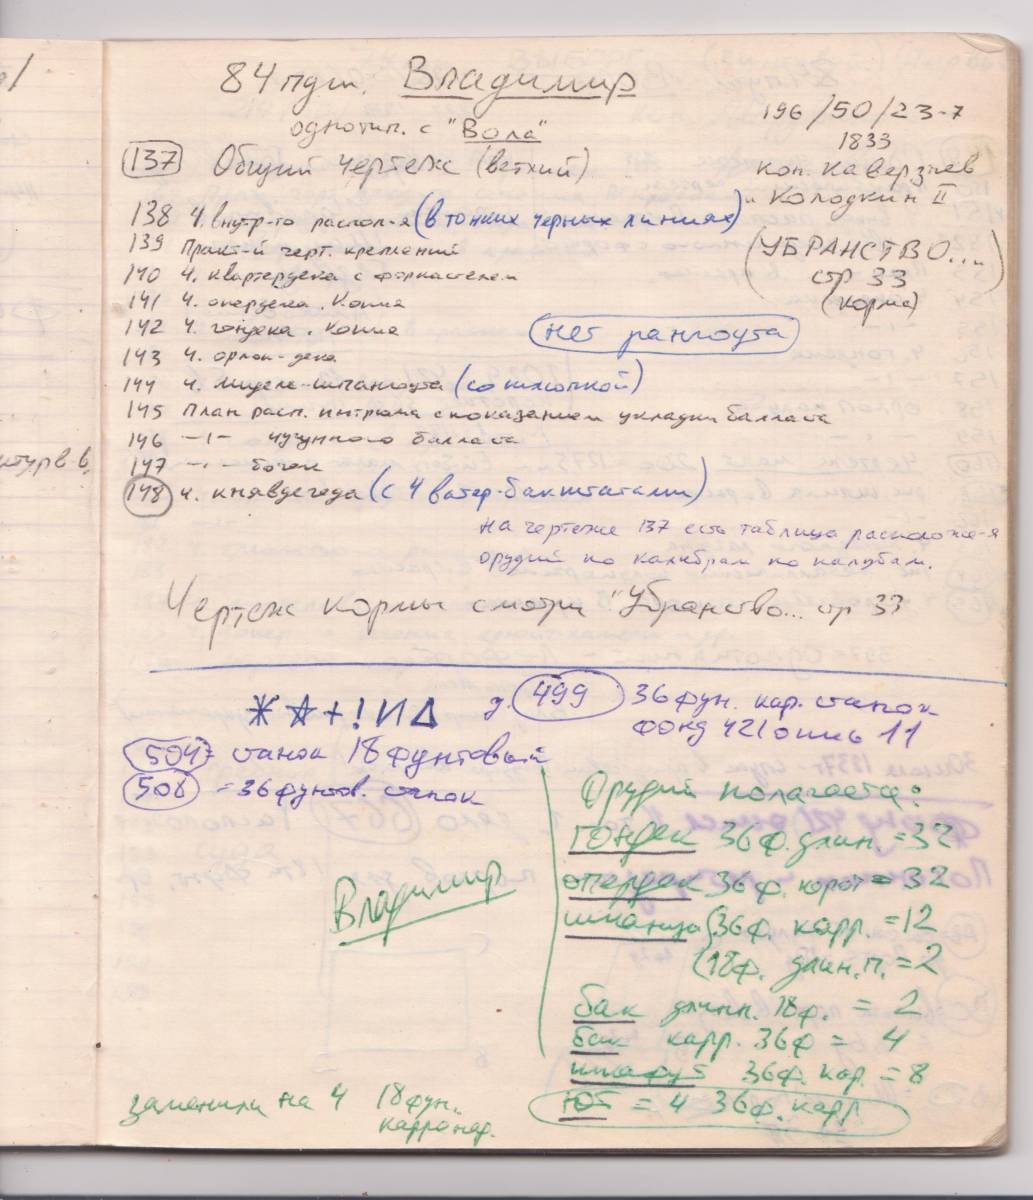 84 пуш. Владимир
однотип. с "Вола"
196/50/23-7
1833
коп. Каверзнев
и Колодкин II
(137) Общий чертеж (ветхий)
138 ч. внутр-го распол-я (в тонких черных линиях)
139 Практ-й черт. креплений
140 ч. квартердека с форкастелем
(УБРАНСТВО...
стр 33
(корма)
141 ч. опердека. Копия
142 ч. гондека. Копия
нет рангоута
143 ч. орлоп-дека
144 ч. мидель-шпангоута (со шлюпкой)
145 План расп. интрюма с показанием укладки балласта
146 -ı- чугунного балласта
147 -ı- бочек
(148) ч. княвдегеда (с 4 ватер-бакштагами)
на чертеже 137 есть таблица располож-я
орудий по калибрам по палубам.
Чертеж кормы смотри "Убранство... стр 33
Ж☆+!ИΔ
д. (499) 36 фун. кар. станок
фонд 421 опись 11
504 станок 18 фунтовый
508 = 36 фунтов. станок
Орудий полагается:
гондек 36ф. длин. = 32
опердек 36ф. корот = 32
шканцы (36ф. карр. = 12
(18ф. длин. п. = 2
бак длинн. 18ф. = 2
бак карр. 36ф = 4
шкафут 36ф. кар. = 8
ют = 4 36ф. карр
Владимир
заменили на 4 18 фун.
карронад.